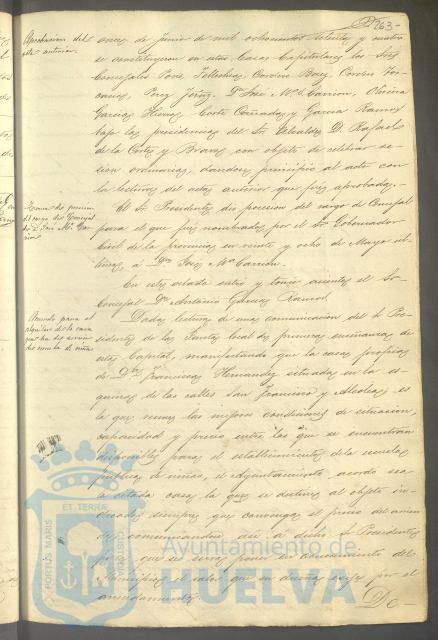 263-
Aprobacion del
acta anterior.
once de Junio de mil ochocientos setenta y cuatro
se constituyeron en estas Casas Capitulares los Sres
Concejales
Garcia Hierro, Corte y Garcia Ramos
bajo la presidencia del Sr Alcalde D. Rafael
de la Corte y Bravo con objeto de celebrar se-
sion ordinaria, dandose principio al acto con
la lectura del acta anterior que fué aprobada.
Toma de posesion
del cargo de Concejal
de D. José Mª Car-
rion.
El Sr Presidente dio posesion del cargo de Concejal
para el que fué nombrado por el Sr Gobernador
Civil de la provincia en veinte y ocho de Mayo ul-
timo, á Dn José Mª Carrion.
En este estado entró y tomó asiento el Sr
Concejal Dn Antonio Garcia Ramos.
Acuerdo para el
alquiler de la casa
que ha de servir
de escuela de niñas
Dada lectura de una comunicacion del Sr Pre-
sidente de la Junta local de primera enseñanza de
esta Capital, manifestando que la casa propia
de Dª Francisca Hernandez situada en la es-
quina de las calles San Francisco y Alcolea, es
la que reune las mejores condiciones de situacion,
capacidad y precio entre las que se encuentran
disponibles para el establecimiento de la escuela
publica de niñas, el Ayuntamiento acordó sea
la citada casa la que se destine al objeto in-
dicado siempre que convenga el precio del arrien-
do comunicandose asi á dicho Sr Presidente
que se sirva poner en conocimiento del
municipio el valor que su dueña exija por el
arrendamiento.
De-
PORTUS MARIS
ET TERRAE
CUSTODIA
Ayuntamiento de
HUELVA